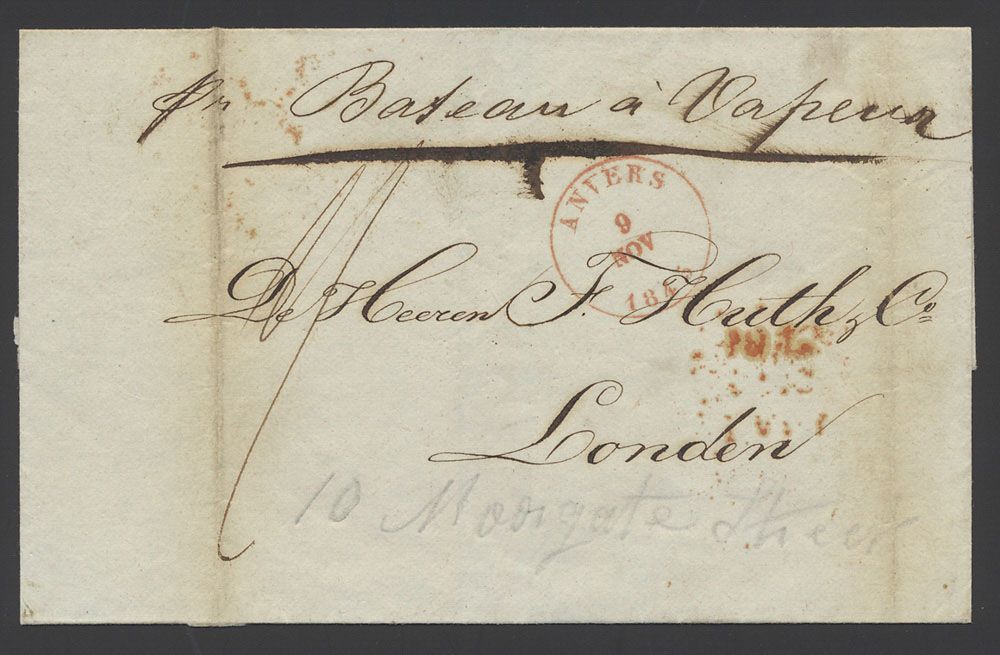 pr Bateau à Vapeur
ANVERS
9
NOV
De Heeren F. Huth & Co
Londen
10 Moorgate Street